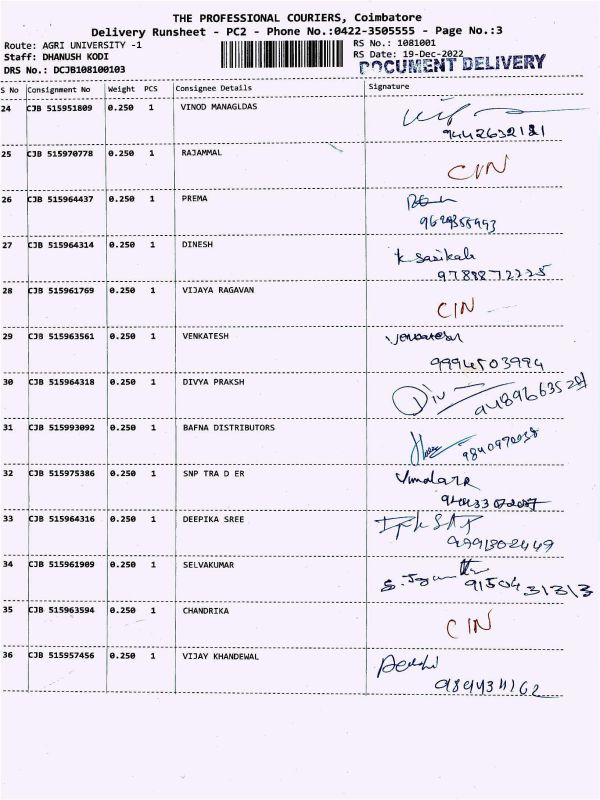 THE PROFESSIONAL COURIERS, Coimbatore
Delivery Runsheet - PC2 - Phone No.:0422-3505555 - Page No.:3
Route: AGRI UNIVERSITY -1 RS No.: 1081001
Staff: DHANUSH KODI RS Date: 19-Dec-2022
DRS No.: DCJB108100103 DOCUMENT DELIVERY
S No Consignment No Weight PCS Consignee Details Signature
24 CJB 515951809 0.250 1 VINOD MANAGLDAS
9442632181
25 CJB 515970778 0.250 1 RAJAMMAL
CIN
26 CJB 515964437 0.250 1 PREMA
27 CJB 515964314 0.250 1 DINESH K Sasikala
9788872225
28 CJB 515961769 0.250 1 VIJAYA RAGAVAN
CIN
29 CJB 515963561 0.250 1 VENKATESH Venkatesh
9994503994
30 CJB 515964318 0.250 1 DIVYA PRAKSH Div
31 CJB 515993092 0.250 1 BAFNA DISTRIBUTORS
9840970038
32 CJB 515975386 0.250 1 SNP TRA D ER
33 CJB 515964316 0.250 1 DEEPIKA SREE
9991302449
34 CJB 515961909 0.250 1 SELVAKUMAR
9150431313
35 CJB 515963594 0.250 1 CHANDRIKA
CIN
36 CJB 515957456 0.250 1 VIJAY KHANDEWAL